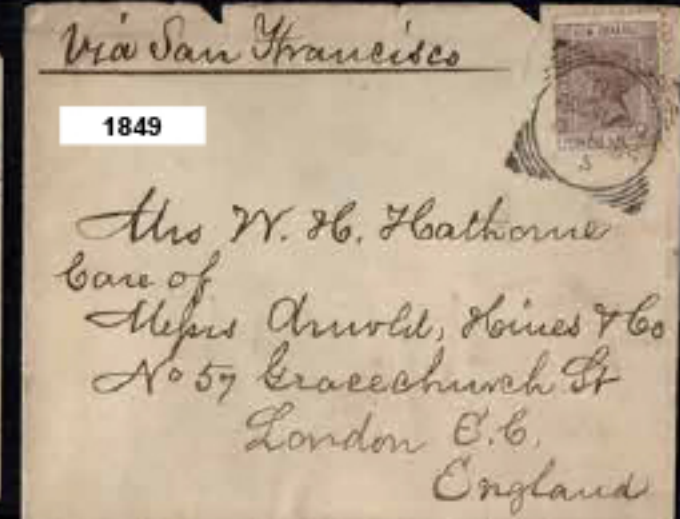 Via San Francisco
1849
Mrs W. H. Hathorne
Care of
Messrs Arnold, Hines & Co
No 57 Gracechurch St
London E.C.
England